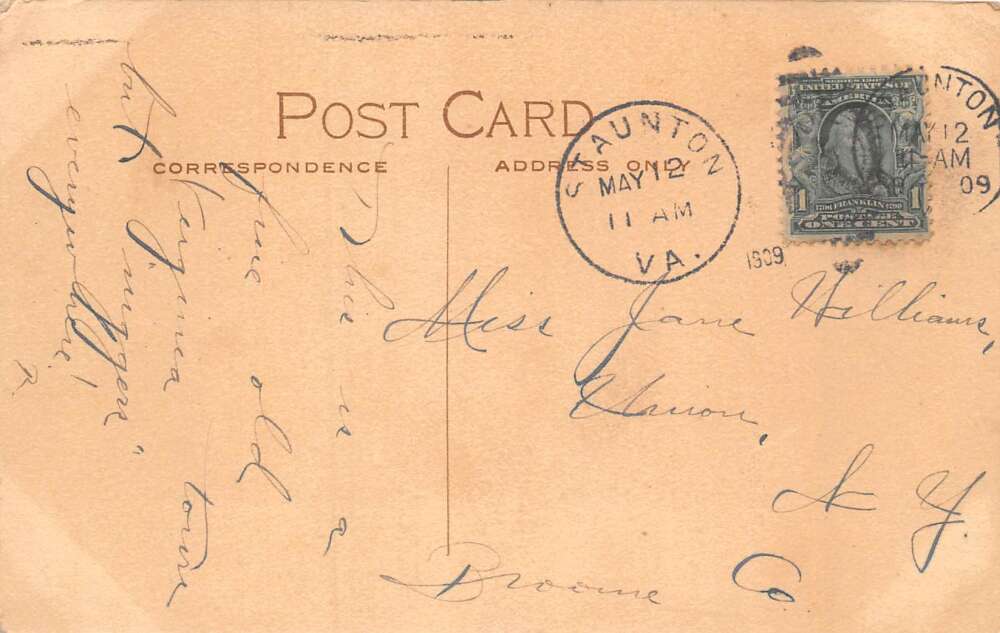 POST CARD
CORRESPONDENCE
ADDRESS ONLY
STAUNTON
MAY 12
11 AM
VA.
1909
UNITED STATES OF
AMERICA
1
1
1706 FRANKLIN 1790
POSTAGE
ONE CENT
UNTON
MAY 12
AM
09
This is a
fine old
Verginea towne
but "niggers"
everywhere!
R.
Miss Jane Williams,
Union,
N Y
Broome Co